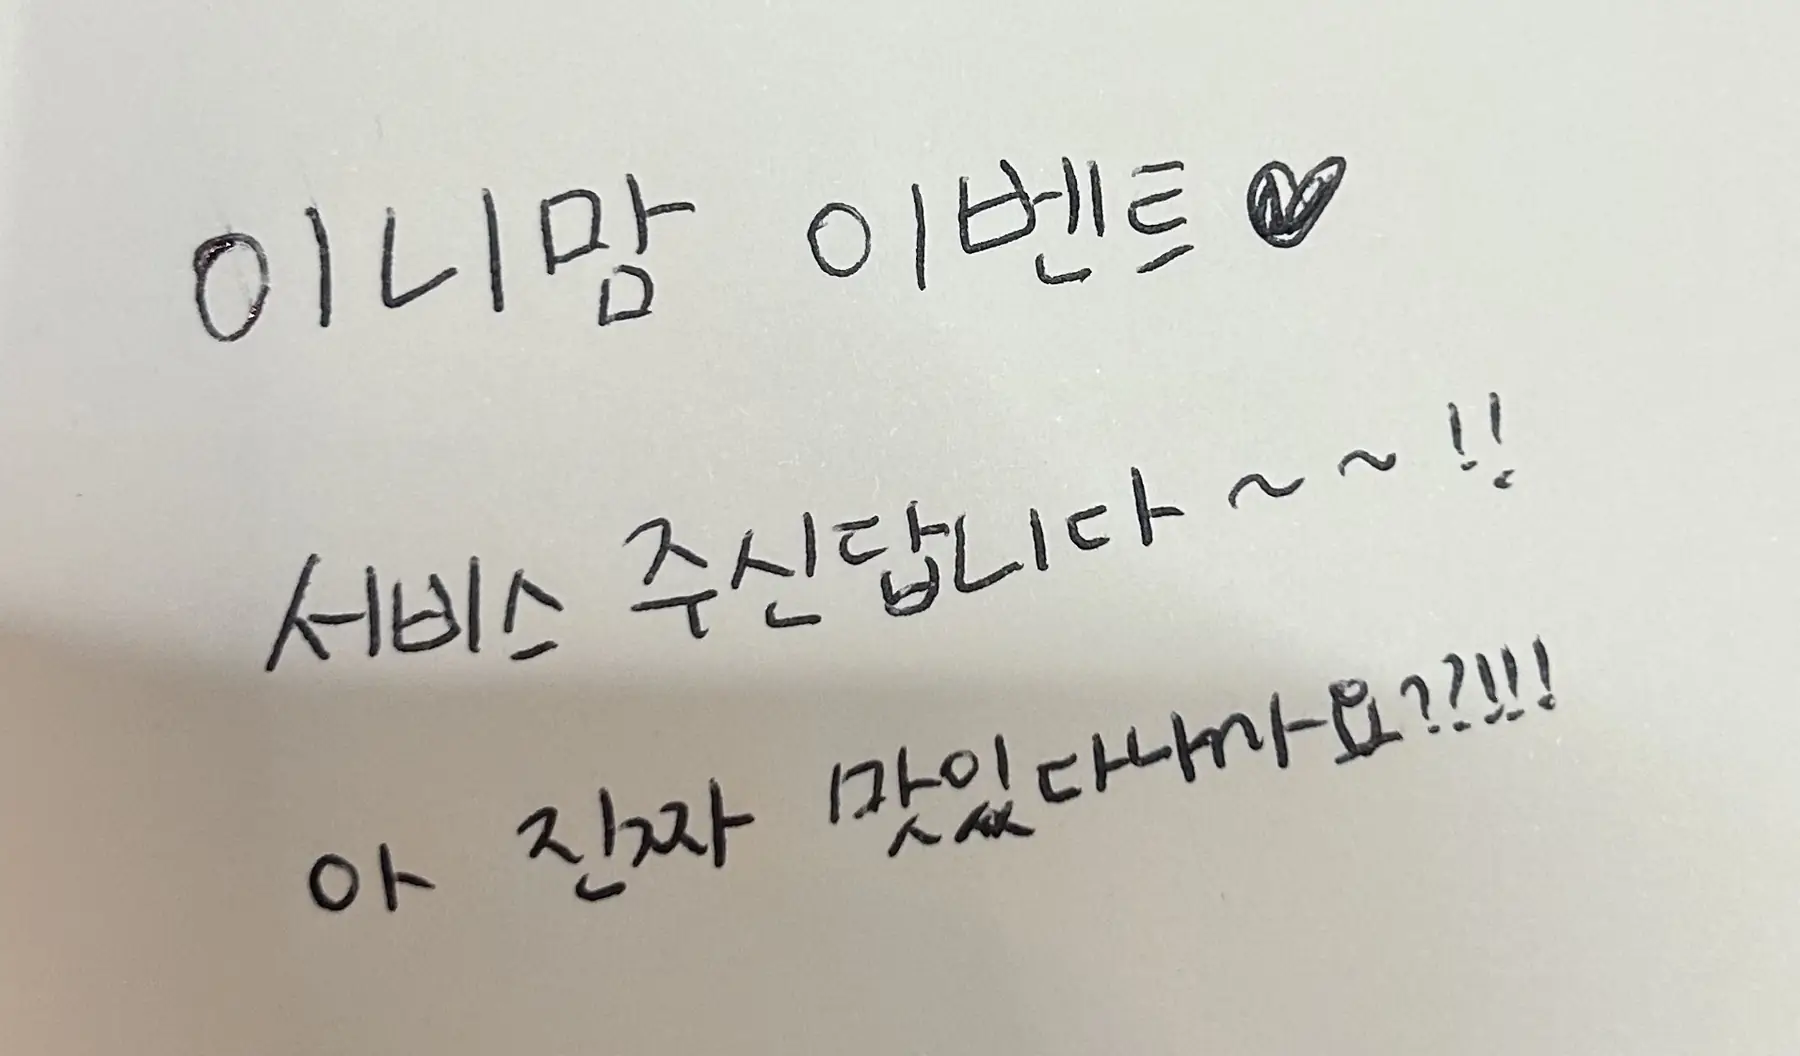 이니맘 이벤트♥
서비스 주신답니다~~!!
아 진짜 맛있다니까요??!!!